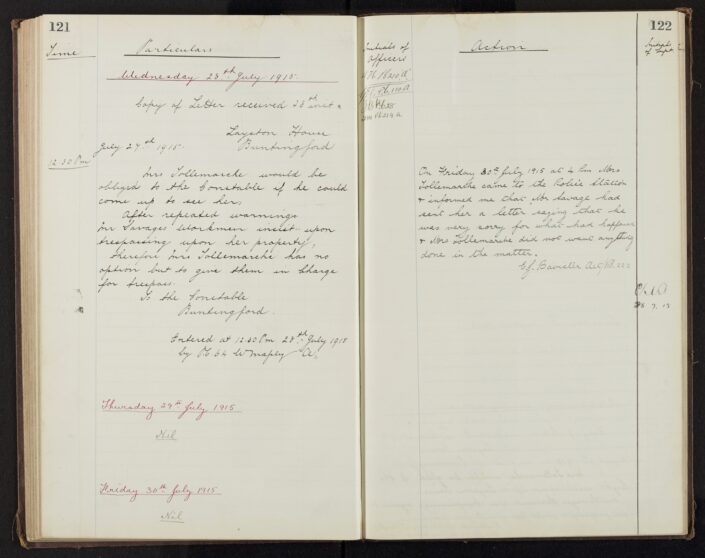 121
Time
Particulars
Wednesday 28th July 1915.
Copy of Letter received 28th inst.
Layston House
July 27th 1915. Buntingford
12.30 Pm
Mrs Tollemarche would be
obliged to the Constable if he could
come up to see her,
After repeated warnings
Mr Savages Workmen insist upon
trespassing upon her property,
therefore Mrs Tollemarche has no
option but to give them in Charge
for trespass.
To the Constable
Buntingford.
Entered at 12.30 Pm 28th July 1915
by PC 64 W
Thursday 29th July 1915
Nil
Friday 30th July 1915
Nil
122
Initials of
Officers
Action
Initials
of Supt.
On Friday 30th July 1915 at 4 Pm Mrs
Tollemarche came to the Police Station
& informed me that Mr Savage had
sent her a letter saying that he
was very sorry for what had happened
& Mrs Tollemarche did not want anything
done in the matter.